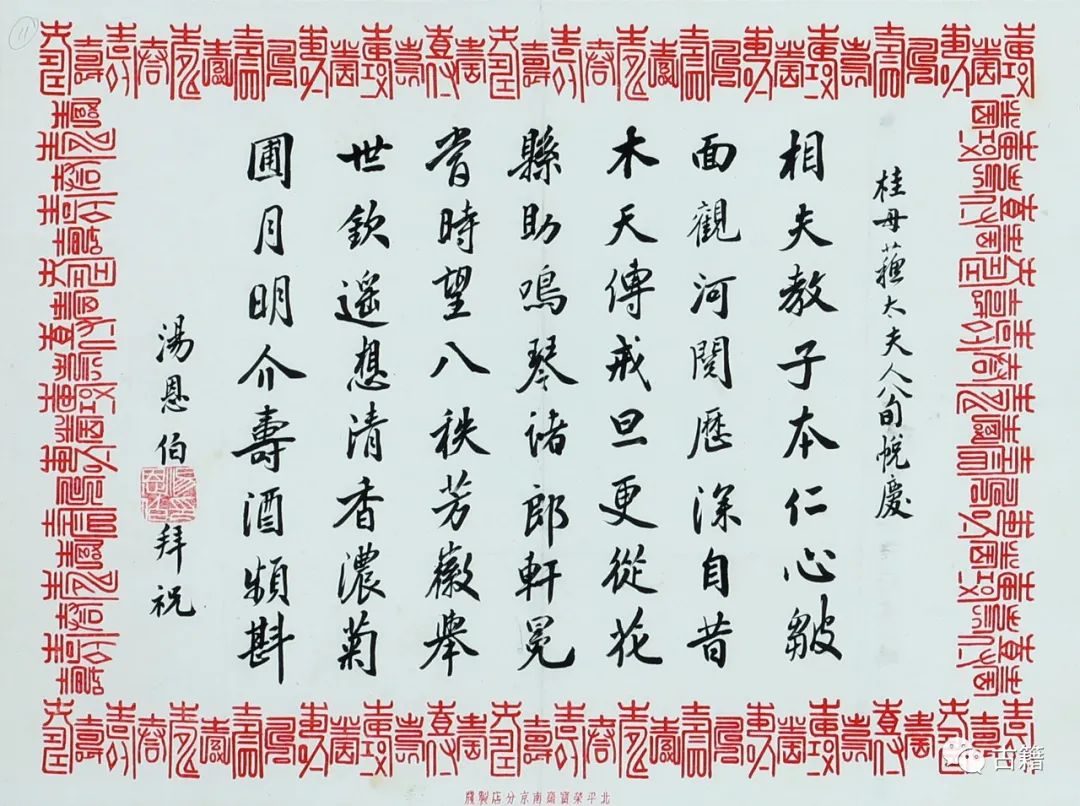 桂母蘓太夫人八旬帨慶
相夫教子本仁心皺
面觀河閱歷深自昔
木天傳戒旦更從花
縣助鳴琴諸郎軒冕
當時望八秩芳徽舉
世欽遥想清香濃菊
圃月明介壽酒頻斟
湯恩伯拜祝
北平榮寶齋南京分店製牋
11
古籍